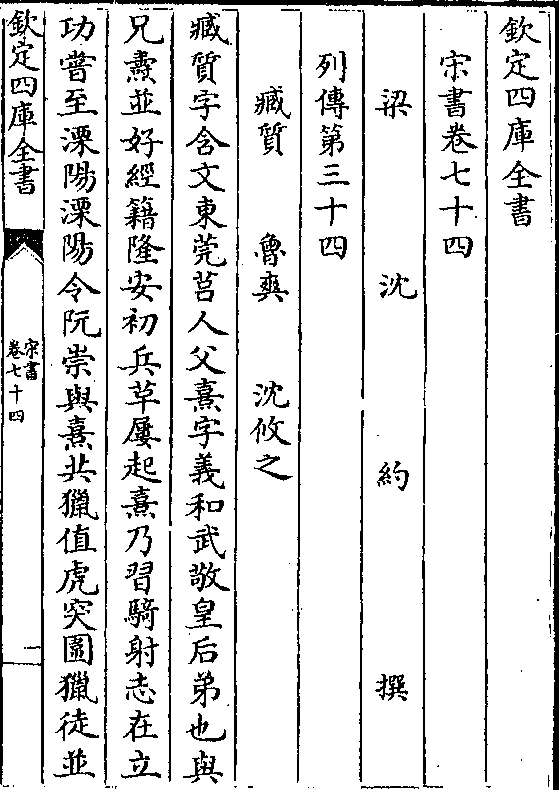 欽定四庫全書
宋書卷七十四
梁沈約撰
列傳第三十四
臧質 魯爽 沈攸之
臧質字含文東莞莒人父熹字義和武敬皇后弟也與
兄燾並好經籍隆安初兵革屢起熹乃習騎射志在立
功嘗至溧陽溧陽令阮崇與熹共獵值虎突圍獵徒並
欽定四庫全書
宋書
卷七十四
一